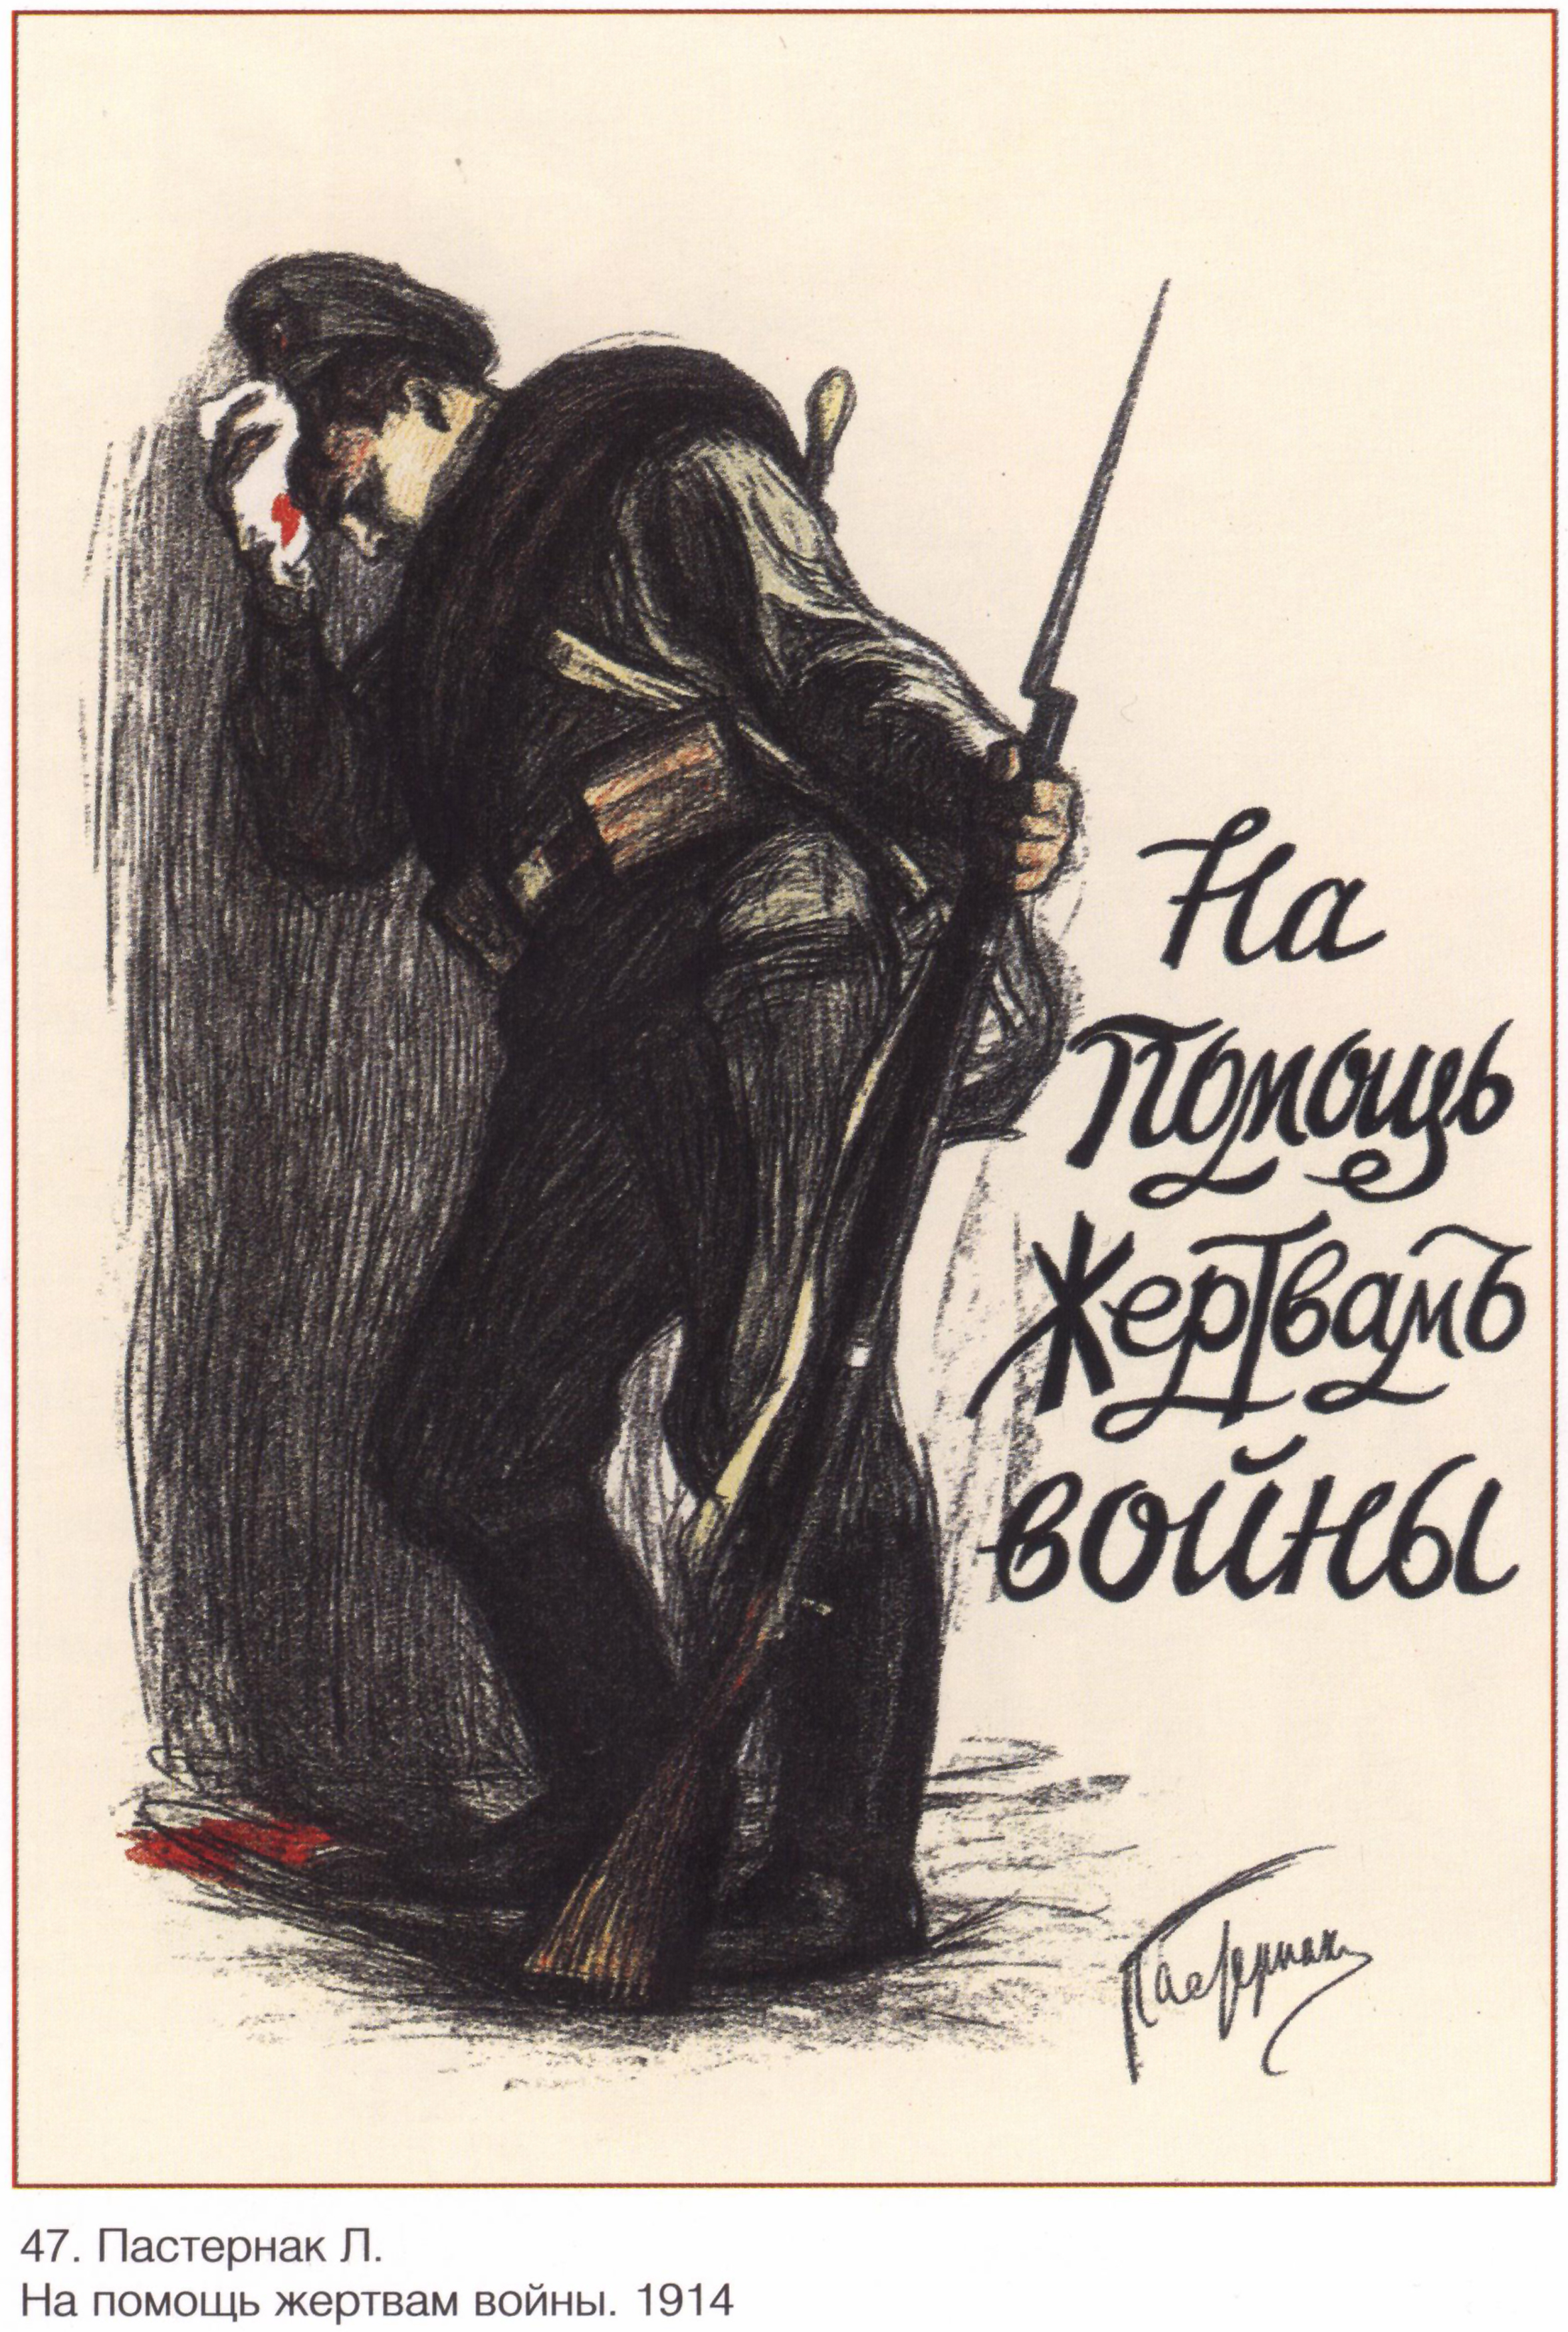 На
Помощь
Жертвамъ
войны
Пастернак
47. Пастернак Л.
На помощь жертвам войны. 1914